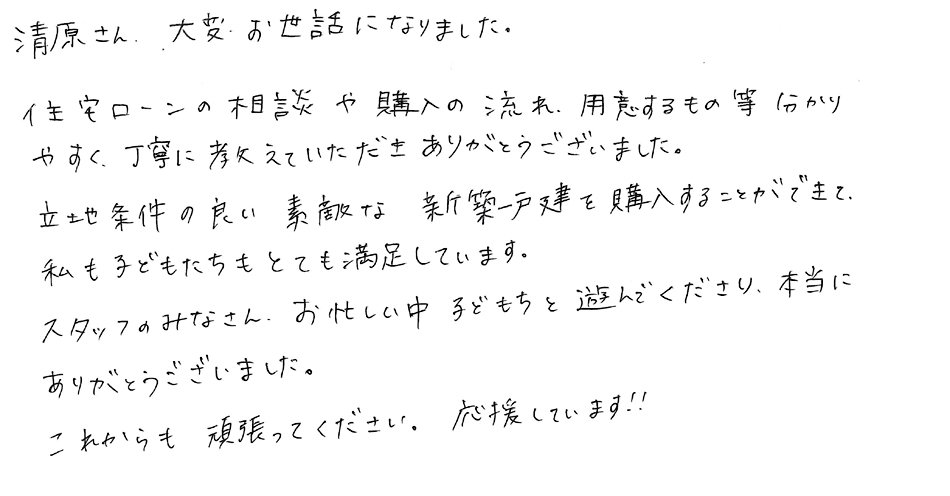 清原さん、大変お世話になりました。
住宅ローンの相談や購入の流れ、用意するもの等 分かり
やすく、丁寧に教えていただき ありがとうございました。
立地条件の良い 素敵な 新築一戸建を購入することができて、
私も子どもたちもとても満足しています。
スタッフのみなさん、お忙しい中 子どもちと遊んでくださり、本当に
ありがとうございました。
これからも 頑張ってください。応援しています!!